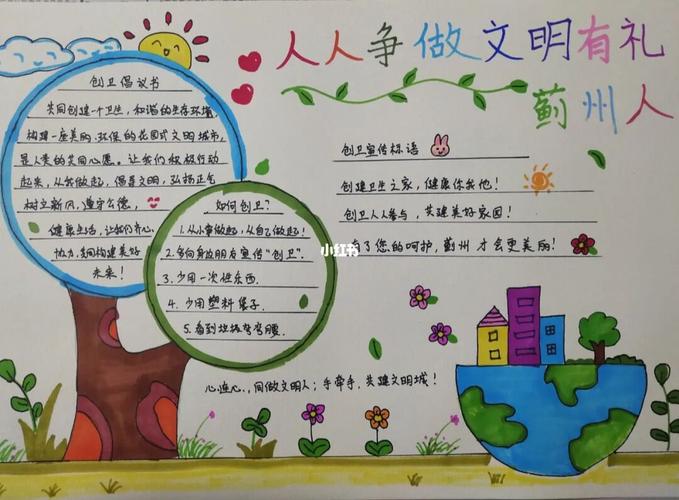 人人争做文明有礼
蓟州人
创卫倡议书
共同创建一个卫生，和谐的生存环境，
构建一座美丽、环保的花园式文明城市，
是人类的共同心愿。让我们积极行动
起来，从我做起，倡导文明，弘扬正气
树立新风，遵守公德，
健康生活，让我们齐心
协力，共同构建美好
未来！
如何创卫？
1.从小事做起，从自己做起！
2.多向身边朋友宣传"创卫".
3.少用一次性东西.
4.少用塑料袋子.
5.看到垃圾弯弯腰.
创卫宣传标语
创建卫生之家，健康你我他！
创卫人人参与，共建美好家园！
有了您的呵护，蓟州才会更美丽！
小红书
心连心.，同做文明人；手牵手，共建文明城！